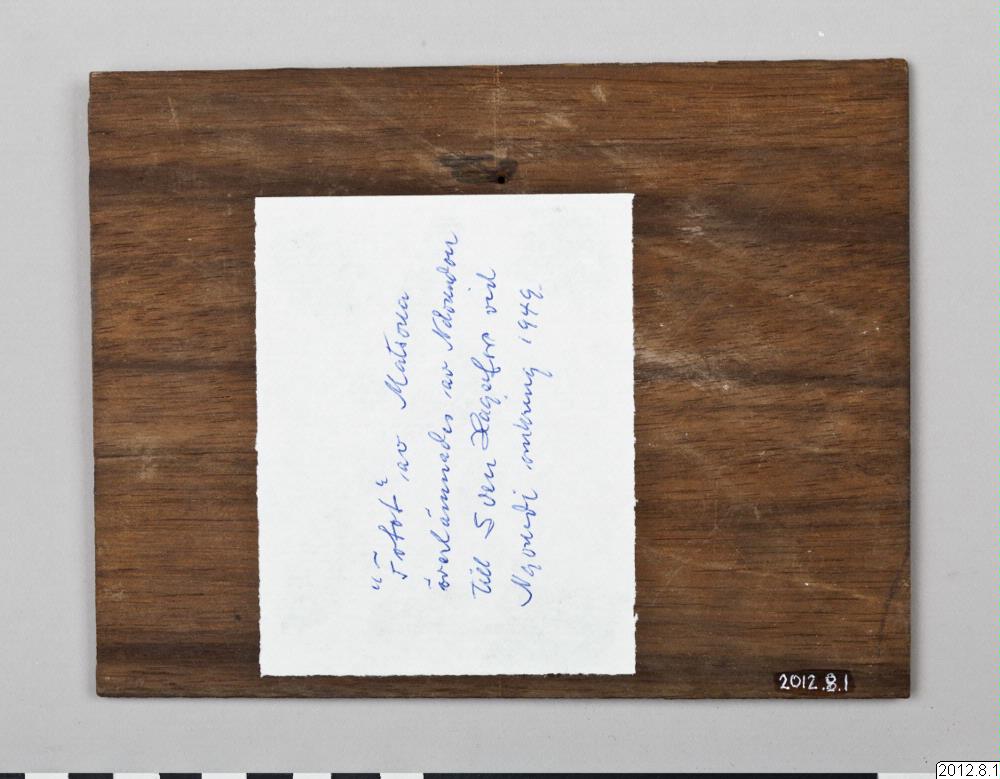 "Totot" av Matsoua
överlämnades av Ndoundou
till Sven Hagerfors vid
Ngouedi omkring 1949.
2012.8.1
2012.8.1